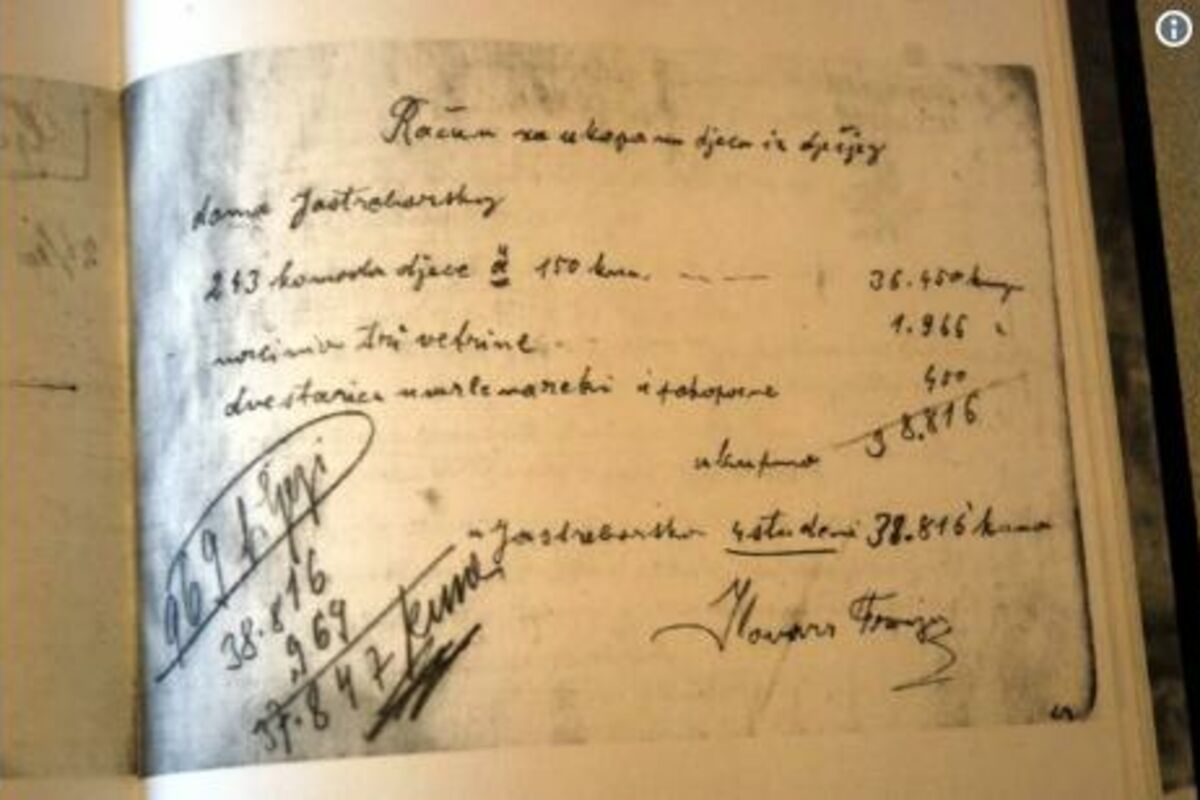 Račun za ukopanu djecu iz dječjeg
doma Jastrebarskog
243 komada djece à 150 kuna. — — — 36.450 kuna
1.966 "
dve starice umrle i zakopane 400
ukupno 38.816
u Jastrebarsko 4 studeni 38.816 kuna
Ilovara Franjo
969
38.816
969
37.847 kuna